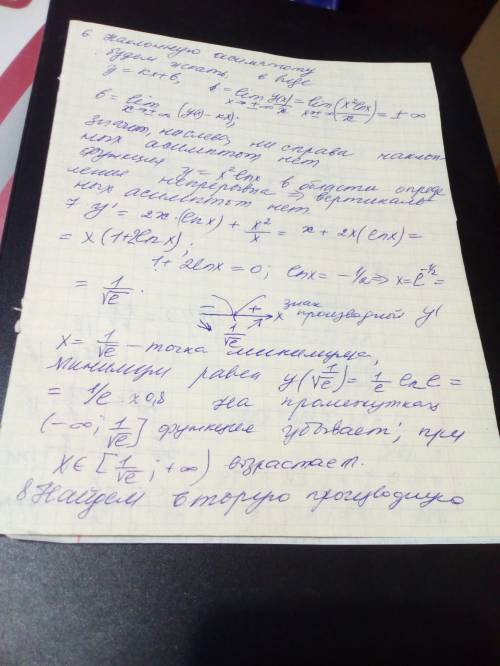 6. Наклонную асимптоту
будем искать в виде
y = kx+b, k = lim y(x)/x = lim (x² lnx / x) = ±∞
b = lim (y(x) - kx);
Значит, ни слева, ни справа наклон-
ных асимптот нет
функция y = x² lnx в области опреде
ления непрерывна => вертикаль-
ных асимптот нет.
7 y' = 2x·(lnx) + x²/x = x + 2x(lnx) =
= x(1+2lnx);
1+2lnx = 0; lnx = -1/2 => x = e^-1/2 =
= 1/√e.
- + x знак
1/√e производной y'
x = 1/√e - точка минимума,
минимум равен y(1/√e) = 1/e lne =
= 1/e ≈ 0,8 На промежутках
(-∞; 1/√e] функция убывает; при
x ∈ [1/√e; +∞) возрастает.
8. Найдем вторую производную